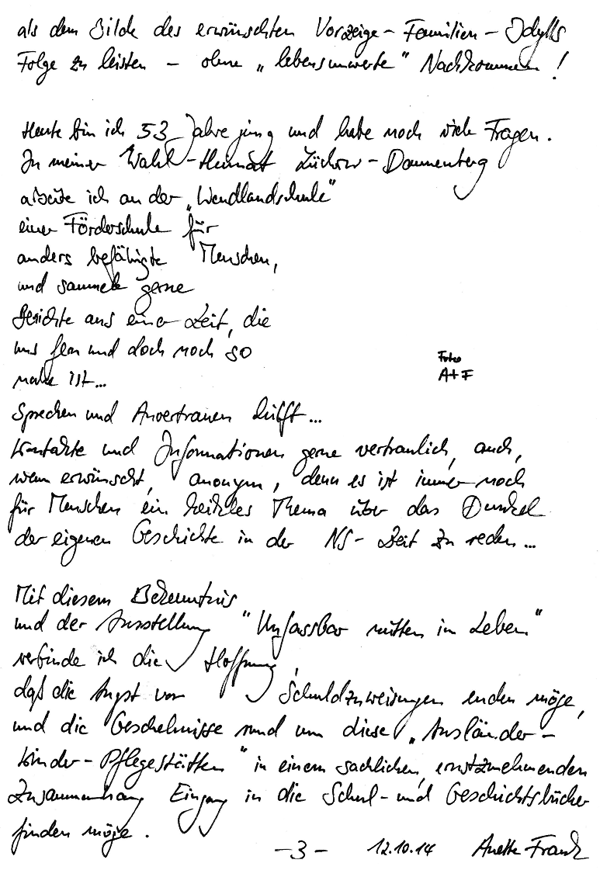 als dem Bilde des erwünschten Vorzeige-Familien-Idylls
Folge zu leisten - ohne „lebensunwerte" Nachkommen !
Heute bin ich 53 Jahre jung und habe noch viele Fragen.
In meiner Wahl-Heimat Lüchow-Dannenberg
arbeite ich an der „Wendlandschule"
einer Förderschule für
anders befähigte Menschen,
und sammele gerne
Berichte aus einer Zeit, die
uns fern und doch noch so
nahe ist...
Foto
A+F
Sprechen und Anvertrauen hilft...
Kontakte und Informationen gerne vertraulich, auch,
wenn erwünscht, anonym, denn es ist immer noch
für Menschen ein heikles Thema über das Dunkel
der eigenen Geschichte in der NS-Zeit zu reden...
Mit diesem Bekenntnis
und der Ausstellung "Unfassbar mitten im Leben"
verbinde ich die Hoffnung,
daß die Angst vor Schuldzuweisungen enden möge,
und die Geschehnisse rund um diese „Ausländer-
Kinder-Pflegestätten" in einem sachlichen, ernstzunehmenden
Zusammenhang Eingang in die Schul- und Geschichtsbücher
finden möge.
-3- 12.10.14 Anette Frank